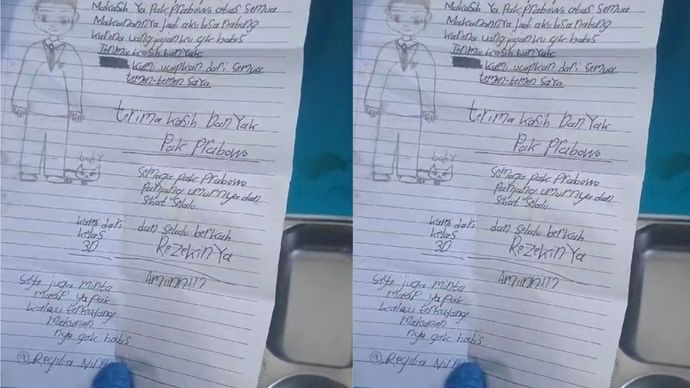 Makasih Ya Pak Prabowo atas semua
Makanannya Jadi aku bisa nabung
karena uang jajanku gak habis
Terima kasih banyak
kami ucapkan dari semua
temen-temen saya
terima kasih banyak
Pak Prabowo
baby
semoga pak Prabowo
panjang umurnya dan
sehat selalu
kami dari
kelas
3D
dan selalu berkah
Rezekinya
Amiinnin
saya juga minta
maaf ya pak
kalau terkadang
makanan
nya gak habis
Regita
Makasih Ya Pak Prabowo atas semua
Makanannya Jadi aku bisa nabung
karena uang jajanku gak habis
Terima kasih banyak
kami ucapkan dari semua
temen-temen saya
terima kasih banyak
Pak Prabowo
baby
semoga pak Prabowo
panjang umurnya dan
sehat selalu
kami dari
kelas
3D
dan selalu berkah
Rezekinya
Amiinnin
saya juga minta
maaf ya pak
kalau terkadang
makanan
nya gak habis
Regita